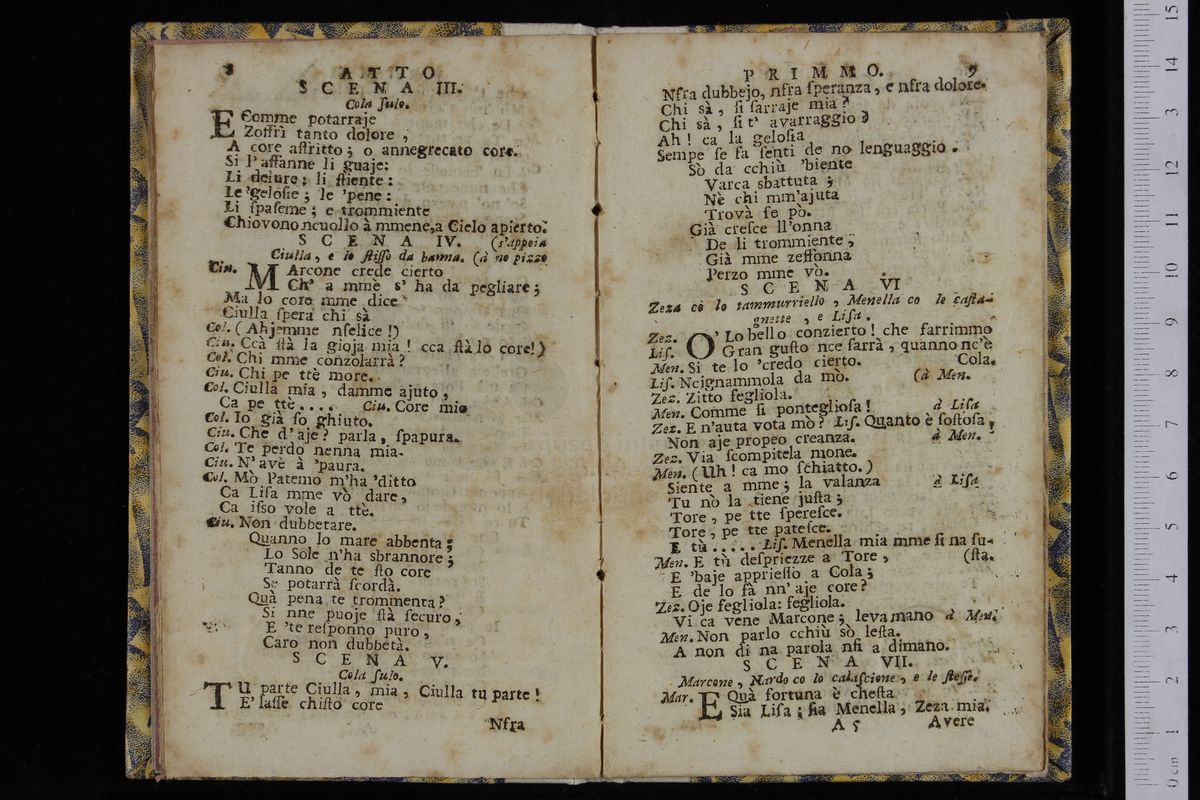 8 ATTO
SCENA III.
Cola ſulo.
E Comme potarraje
Zoffrì tanto dolore,
A core aſtritto; o annegrecato core.
Si l'affanne li guaje:
Li deſure; li ſtiente:
Le 'geloſie; le 'pene:
Li ſpaſeme; e trommiente
Chiovono ncuollo à mmene, a Cielo apierto.
SCENA IV. (s'appoja
Ciulla, e lo ſtiſſo da banna. (à no pizzo
Ciu. MArcone crede cierto
Ch' a mme s' ha da pegliare;
Ma lo core mme dice
Ciulla ſpera chi sà
Col. (Ahjemme nfelice!)
Ciu. Ccà ſtà la gioja mia! cca ſtà lo core!)
Col. Chi mme conzolarrà?
Ciu. Chi pe ttè more.
Col. Ciulla mia, damme ajuto,
Ca pe ttè.... Ciu. Core mio
Col. Io già ſo ghiuto.
Ciu. Che d'aje? parla, ſpapura.
Col. Te perdo nenna mia.
Ciu. N'avè à 'paura.
Col. Mò Patemo m'ha 'ditto
Ca Liſa mme vò dare,
Ca iſſo vole a ttè.
Ciu. Non dubbetare.
Quanno lo mare abbenta;
Lo Sole n'ha sbrannore;
Tanno de te ſto core
Se potarrà ſcordà.
Quà pena te trommenta?
Si nne puoje ſtà ſecuro,
E 'te reſponno puro,
Caro non dubbetà.
SCENA V.
Cola ſulo.
TU parte Ciulla, mia, Ciulla tu parte!
E' laſſe chiſto core
Nfra
PRIMMO. 9
Nfra dubbejo, nfra ſperanza, e nfra dolore.
Chi sà, ſi ſarraje mia?
Chi sà, ſi t' avarraggio?
Ah! ca la geloſia
Sempe ſe fa ſenti de no lenguaggio.
Sò da cchiù 'biente
Varca sbattuta;
Nè chi mm'ajuta
Trovà ſe pò.
Già creſce ll'onna
De li trommiente;
Già mme zeffonna
Perzo mme vò.
SCENA VI
Zeza cò lo tammurriello, Menella co le caſta-
gnette, e Liſa.
Zez. O' Lo bello conzierto! che farrimmo
Liſ. Gran guſto nce ſarrà, quanno nc'è
Men. Si te lo 'credo cierto. Cola.
Liſ. Ncignammola da mò. (à Men.
Zez. Zitto fegliola.
Men. Comme ſi ponteglioſa! à Liſa
Zez. E n'auta vota mò? Liſ. Quanto è ſoſtoſa,
Non aje propeo creanza. à Men.
Zez. Via ſcompitela mone.
Men. (Uh! ca mo ſchiatto.)
Siente a mme; la valanza à Liſa
Tu nò la tiene juſta;
Tore, pe tte ſpereſce.
Tore, pe tte pateſce.
E tù..... Liſ. Menella mia mme ſi na fu-
Men. E tù deſpriezze a Tore, (ſta.
E 'baje apprieſſo a Cola;
E de lo fà nn' aje core?
Zez. Oje fegliola: fegliola.
Vi ca vene Marcone; leva mano à Men.
Men. Non parlo cchiù sò leſta.
A non di na parola nfi a dimano.
SCENA VII.
Marcone, Nardo co lo calaſcione, e le ſteſſe.
Mar. E Quà fortuna è cheſta
Sia Liſa; ſia Menella, Zeza mia.
A 5 Avere